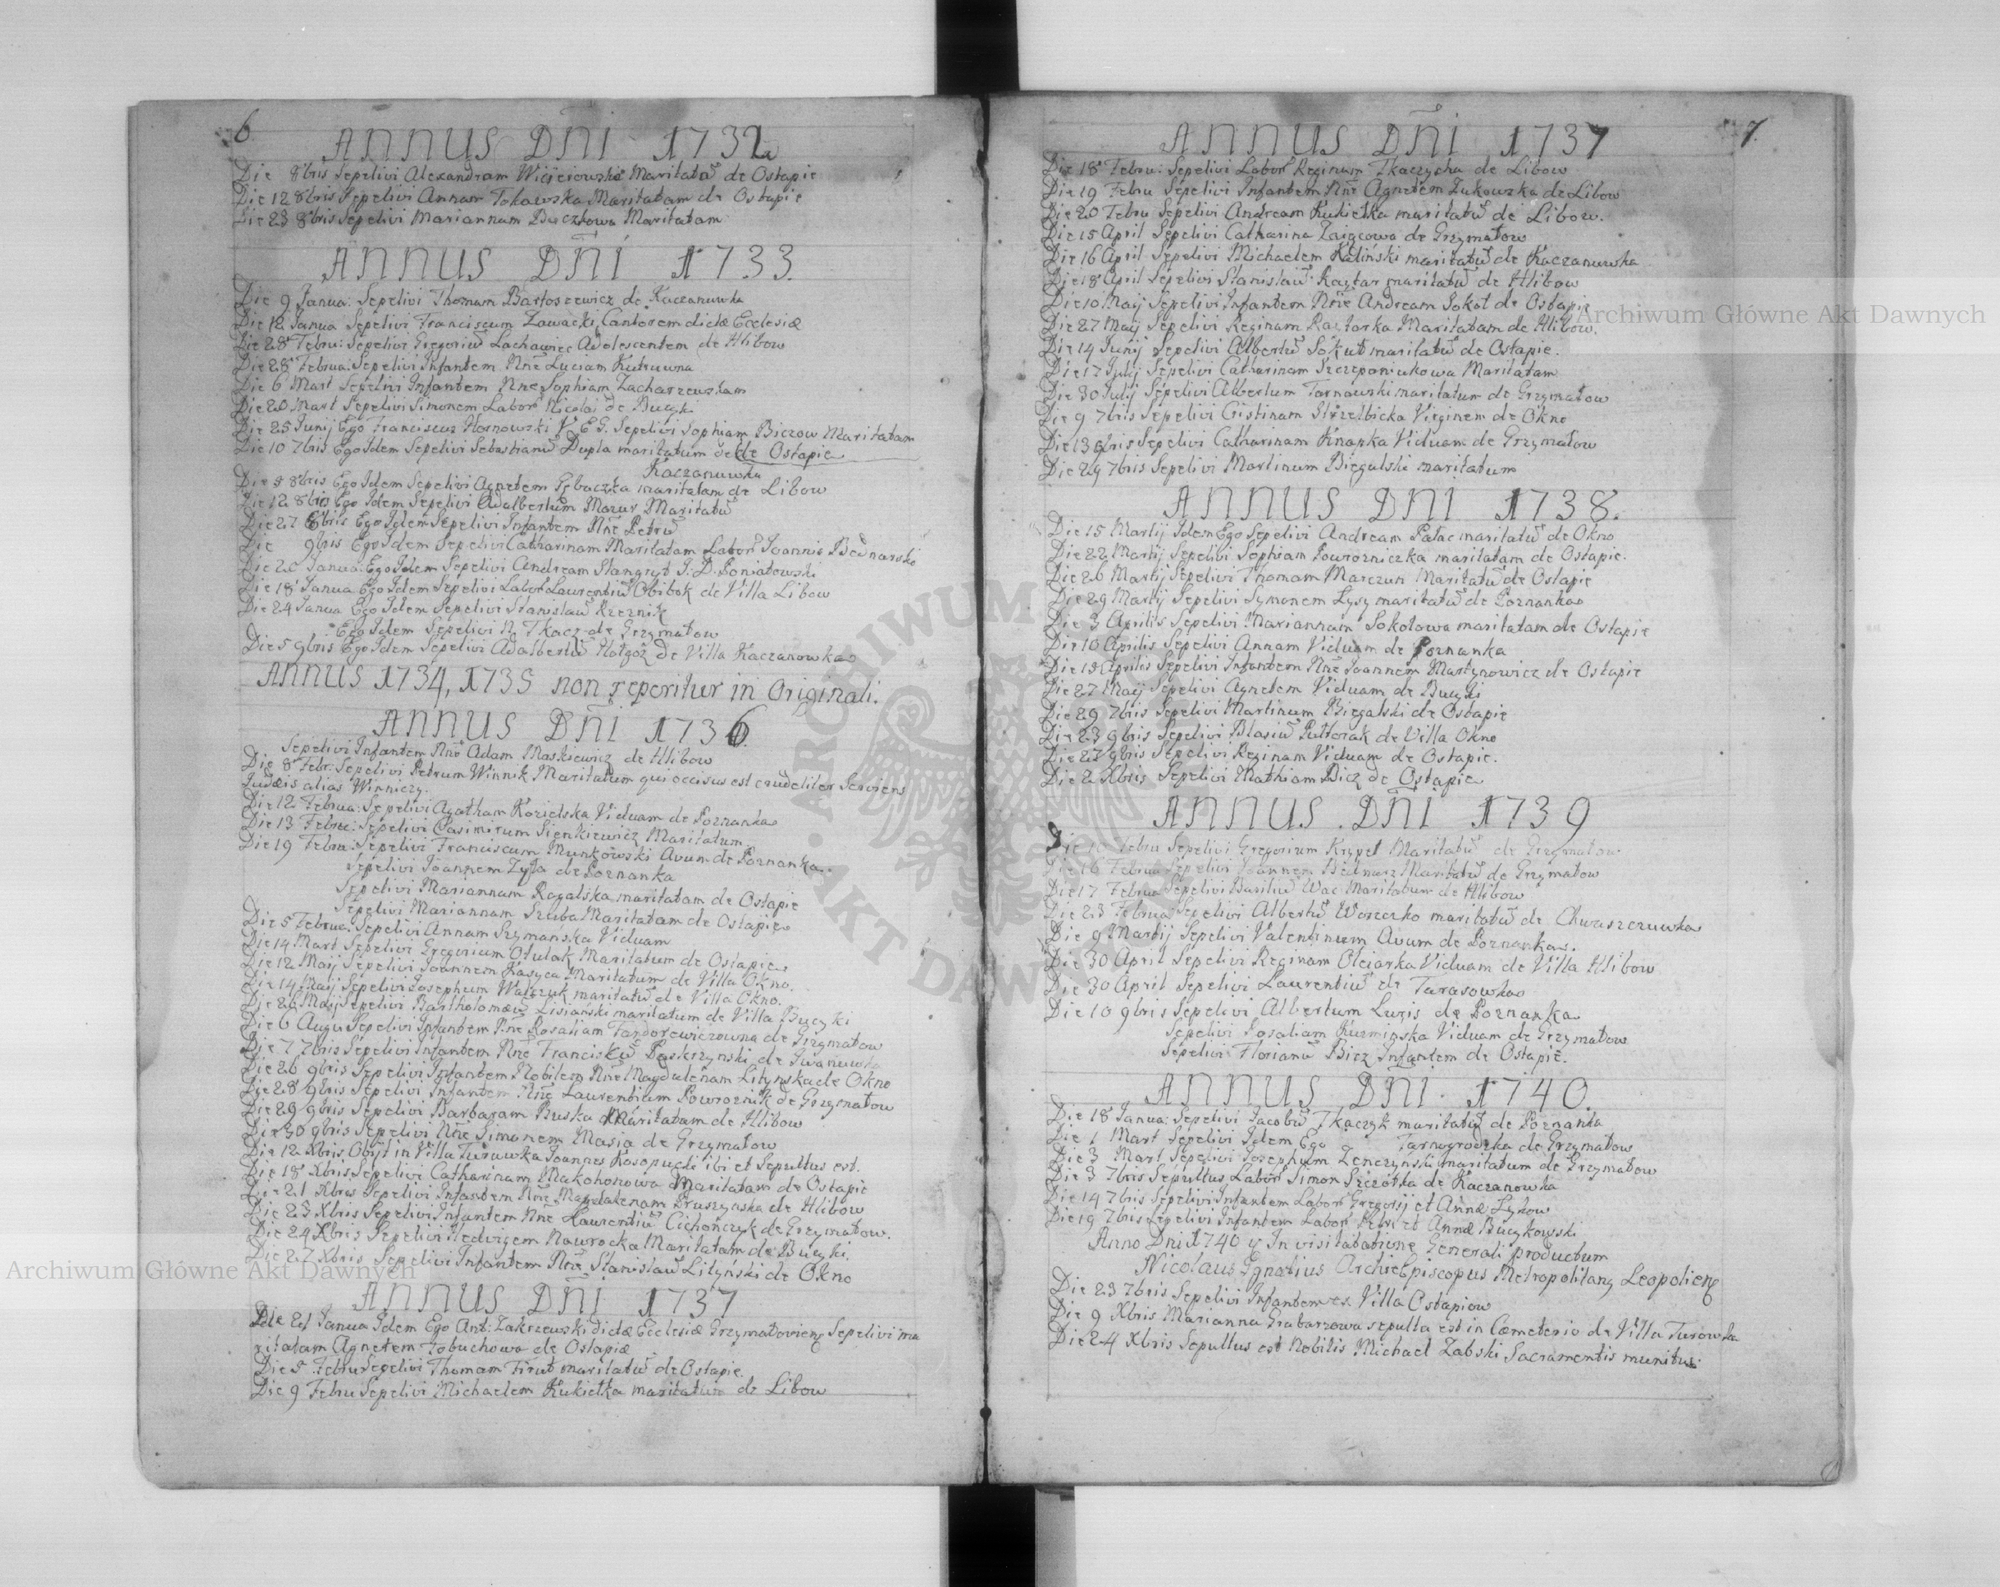 6
ANNUS DNI 1732
Die 8bris Sepelivi Alexandram Maritatā de Ostapie
Die 12 8bris Sepelivi Annam Tokawska Maritatam de Ostapie
Die 23 8bris Sepelivi Mariannam Buczkowa Maritatam
ANNUS DNI 1733.
Die 9 Janua: Sepelivi Thomam Bartoszewicz de Kaczanuwka
Die 12 Janua Sepelivi Franciscum Zawacki Cantorem dictæ Ecclesiæ
Die 28 Febru: Sepelivi Gregoriū Lachowiec Adolescentem de Hlibow
Die 28 Februa: Sepelivi Infantem Nñe Luciam Kutruwna
Die 6 Mart Sepelivi Infantem Nñe Sophiam Zacharzewskam
Die 20 Mart Sepelivi Simonem Labor Nicolai de Bucyki
Die 25 Junij Ego Franciscus Nosnowski V. E G. Sepelivi Sophiam Biczow Maritatam
Die 10 7bris Ego Idem Sepelivi Sebastianū Dupla maritatum de de Ostapie
Kaczanuwka
Die 8 8bris Ego Idem Sepelivi Agnetem Gębaczka maritatam de Libow
Die 12 8bris Ego Idem Sepelivi Adalbertum Mazur Maritatū
Die 27 8bris Ego Idem Sepelivi Infantem Nñe Petrū
Die 9bris Ego Idem Sepelivi Catharinam Maritatam Labor Joannis Bednarski
Die 20 Janua: Ego Idem Sepelivi Andream Stangryt J. D. Poniatowski
Die 18 Janua Ego Idem Sepelivi Labor Laurentiū Obibok de Villa Libow
Die 24 Janua Ego Idem Sepelivi Stanislaū Rzeznik
Ego Idem Sepelivi N. Tkacz de Grzymałow
Die 5 9bris Ego Idem Sepelivi Adalbertū Hołgoz de Villa Kaczanowka
ANNUS 1734, 1735 non reperitur in Originali.
ANNUS DNI 1736.
Sepelivi Infantem Nñe Adam Maskiewicz de Hlibow
Die 8 Febr: Sepelivi Petrum Winnik Maritatum qui occisus est crudeliter Serviens
Judæis alias Winniczy.
Die 12 Februa: Sepelivi Agatham Kozielska Viduam de Poznanka
Die 13 Febru: Sepelivi Casimirum Sienkiewicz Maritatum
Die 19 Februa: Sepelivi Franciscum Munkowski Avum de Poznanka
Sepelivi Joannem Zyła de Poznanka
Sepelivi Mariannam Rogalska maritatam de Ostapie
Sepelivi Mariannam Szuba Maritatam de Ostapie
Die 5 Februa: Sepelivi Annam Szymańska Viduam
Die 14 Mart Sepelivi Gregorium Otulak Maritatum de Ostapie
Die 12 Maij Sepelivi Joannem Kasyca Maritatum de Villa Okno.
Die 14 Maij Sepelivi Josephum Walczuk maritatū de Villa Okno.
Die 26 Maij Sepelivi Bartholomæū Lisiański maritatum de Villa Bucyki
Die 6 Augu Sepelivi Infantem Nñe Rosaliam Fandorewiczowna de Grzymałow
Die 7 7bris Sepelivi Infantem Nñe Franciskū Paskrzynski de Iwanuwka
Die 26 9bris Sepelivi Infantem Nobilem Nñe Magdalenam Litynska de Okno
Die 28 9bris Sepelivi Infantem Nñe Laurentium Powroznik de Grzymałow
Die 29 9bris Sepelivi Barbaram Ruska Maritatam de Hlibow
Die 30 9bris Sepelivi Nñe Simonem Masia de Grzymałow
Die 12 Xbris Obijt in Villa Turuwka Joannes Kosopucki ibi et Sepultus est.
Die 18 Xbris Sepelivi Catharinam Makohonowa Maritatam de Ostapie
Die 21 Xbris Sepelivi Infantem Nñe Magdalenam Pruszynska de Hlibow
Die 23 Xbris Sepelivi Infantem Nñe Laurentiū Cichończyk de Grzymałow.
Die 24 Xbris Sepelivi Hedvigem Nawrocka Maritatam de Bucyki.
Die 27 Xbris Sepelivi Infantem Nñe Stanislaū Lityński de Okno
ANNUS DNI 1737
Die 21 Janua Idem Ego Ant: Zakrzewski dictæ Ecclesiæ Grzymałovien Sepelivi ma
ritatam Agnetem Łobuchowa de Ostapiæ
Die 5 Febru Sepelivi Thomam Firut maritatū de Ostapie.
Die 9 Febru Sepelivi Michaelem Kukiełka maritatum de Libow
7.
ANNUS DNI 1737
Die 18 Febru: Sepelivi Labor Reginam Tkaczycha de Libow
Die 19 Febru Sepelivi Infantem Nñe Agnetem Zukowska de Libow
Die 20 Febru Sepelivi Andream Kukiełka maritatū de Libow.
Die 15 April Sepelivi Catharina Zaięcowa de Grzymałow
Die 16 April Sepelivi Michaelem Kaliński maritatū de Kaczanuwka
Die 18 April Sepelivi Stanislaū Rajtar maritatū de Hlibow
Die 10 Maij Sepelivi Infantem Nñe Andream Sokoł de Ostapie
Die 27 Maij Sepelivi Reginam Rajtarka Maritatam de Hlibow.
Die 14 Junij Sepelivi Albertū Sokuł maritatū de Ostapie.
Die 17 Julij Sepelivi Catharinam Szczeponiukowa Maritatam
Die 30 Julij Sepelivi Albertum Tarnawski maritatum de Grzymałow
Die 9 7bris Sepelivi Cristinam Strzelbicka Virginem de Okno
Die 13 9bris Sepelivi Catharinam Knapka Viduam de Grzymałow
Die 29 7bris Sepelivi Martinum Biegalski maritatum
ANNUS DNI 1738.
Die 15 Martij Idem Ego Sepelivi Andream Pałac maritatū de Okno
Die 22 Martij Sepelivi Sophiam Powrozniczka maritatam de Ostapie.
Die 26 Martij Sepelivi Thomam Marczun Maritatū de Ostapie
Die 29 Martij Sepelivi Symonem Lysy maritatū de Poznanka
Die 3 Aprilis Sepelivi Mariannam Sokołowa maritatam de Ostapie
Die 10 Aprilis Sepelivi Annam Viduam de Poznanka
Die 15 Aprilis Sepelivi Infantem Nñe Joannem Martynowicz de Ostapie
Die 27 Maij Sepelivi Agnetem Viduam de Bucyki
Die 29 7bris Sepelivi Martinum Biegalski de Ostapie
Die 23 9bris Sepelivi Blasiū Putorak de Villa Okno
Die 27 9bris Sepelivi Reginam Viduam de Ostapie.
Die 2 Xbris Sepelivi Mathiam Bicz de Ostapie
ANNUS DNI 1739
Die 10 Febru Sepelivi Gregorium Krypel Maritatū de Grzymałow
Die 16 Februa Sepelivi Joannem Bednarz Maritatū de Grzymałow
Die 17 Februa Sepelivi Basiliū Wac Maritatum de Hlibow
Die 23 Februa Sepelivi Albertū Woreczko maritatū de Chwaszczuwka
Die 9 Martij Sepelivi Valentinum Avum de Poznanka.
Die 30 April Sepelivi Reginam Olejarka Viduam de Villa Hlibow
Die 30 April Sepelivi Laurentiū de Tarasowka
Die 10 9bris Sepelivi Albertum Luzis de Poznanka
Sepelivi Rosaliam Kuzminska Viduam de Grzymałow
Sepelivi Florianū Bicz Infantem de Ostapie.
ANNUS DNI 1740.
Die 18 Janua: Sepelivi Jacobū Tkaczyk maritatū de Poznanka
Die 1 Mart Sepelivi Idem Ego Tarnogrodzka de Grzymałow
Die 3 Mart Sepelivi Josephum Zenczynski maritatum de Grzymałow
Die 3 7bris Sepultus Labor Simon Szczotka de Kaczanowka
Die 14 7bris Sepelivi Infantem Labor Gregorij et Annæ Lykow
Die 19 7bris Sepelivi Infantem Labor Petri et Annæ Bucykowski
Anno Dni 1740 In visitabatione Generali productum
Nicolaus Ignatius ArchiEpiscopus Metropolitany Leopolien
Die 23 7bris Sepelivi Infantem ex Villa Ostapiow
Die 9 Xbris Marianna Grabarzowa sepulta est in Cæmeterio de Villa Turowka
Die 24 Xbris Sepultus est Nobilis Michael Zabski Sacramentis munitus
Archiwum Główne Akt Dawnych
Archiwum Główne Akt Dawnych
ARCHIWUM GŁÓWNE AKT DAWNYCH